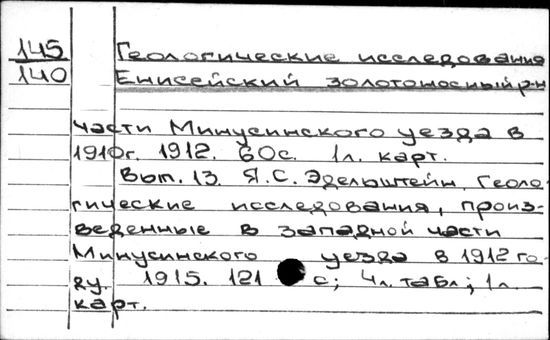 145 Геологические исследования
140 Енисейский золотоносный р-н
части Минусинского уезда в
1910г. 1912. 60с. 1л. карт.
Вып. 13. Я.С. Эдельштейн. Геоло-
гические исследования, произ-
веденные в западной части
Минусинского уезда в 1912 го-
ду. 1915. 121 с; 4л. табл; 1л.
карт.